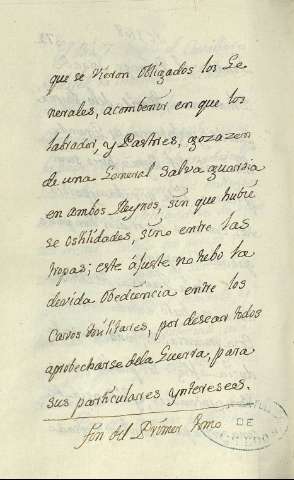 que se vieron obligados los Ge-
nerales, acombenir en que los
labrador, y Pastores, gozazen
de una General salva guardia
en ambos Reynos, sin que hubie
se ostilidades, sino entre las
tropas; este ájuste no hubo la
devida obediencia entre los
Cavos militares, por desear todos
aprobecharse dela Guerra, para
sus particulares yntereses.
fin del Primer tomo
DE